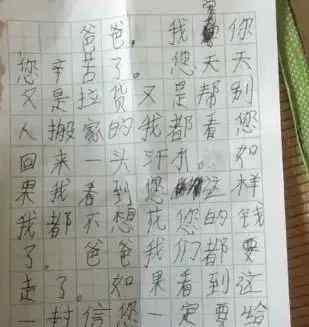 爸爸。我 你
您辛苦了。您天天
又是拉货又是帮别
人搬家的我都看您
回来一头汗水。如
果我看到您 这样
我都不想花您的钱
了。爸爸我们都要
走了。如果看到这
一封信您一定要给